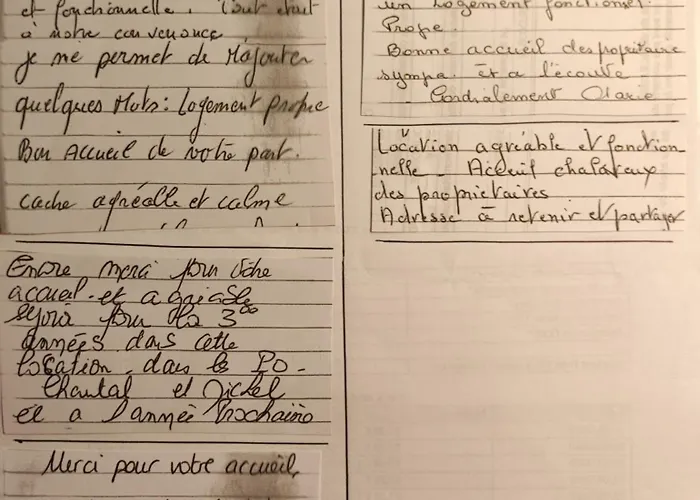 et fonctionnelle. Tout était
à notre convenance
je me permet de Rajouter
quelques Mots: Logement propre
Bon Accueil de votre part.
cache agréalle et calme
Encore merci pour votre
accueil. et agréable
séjour pour la 3
années dans cette
location dans le PO-
Chantal et Michel
et a l'année prochaine
Merci pour votre accueil,
un logement fonctionel.
Propre.
Bonne accueil des propriétaire
sympa. et a l'écoute
Cordialement
Location agréable et fonction
nelle - Acceuil chalareux
des proprietaires
Adresse à retenir et partager